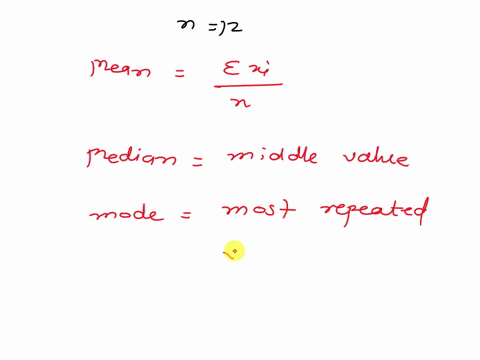 n = 12
Mean = Σxi
n
Median = middle value
mode = most repeated